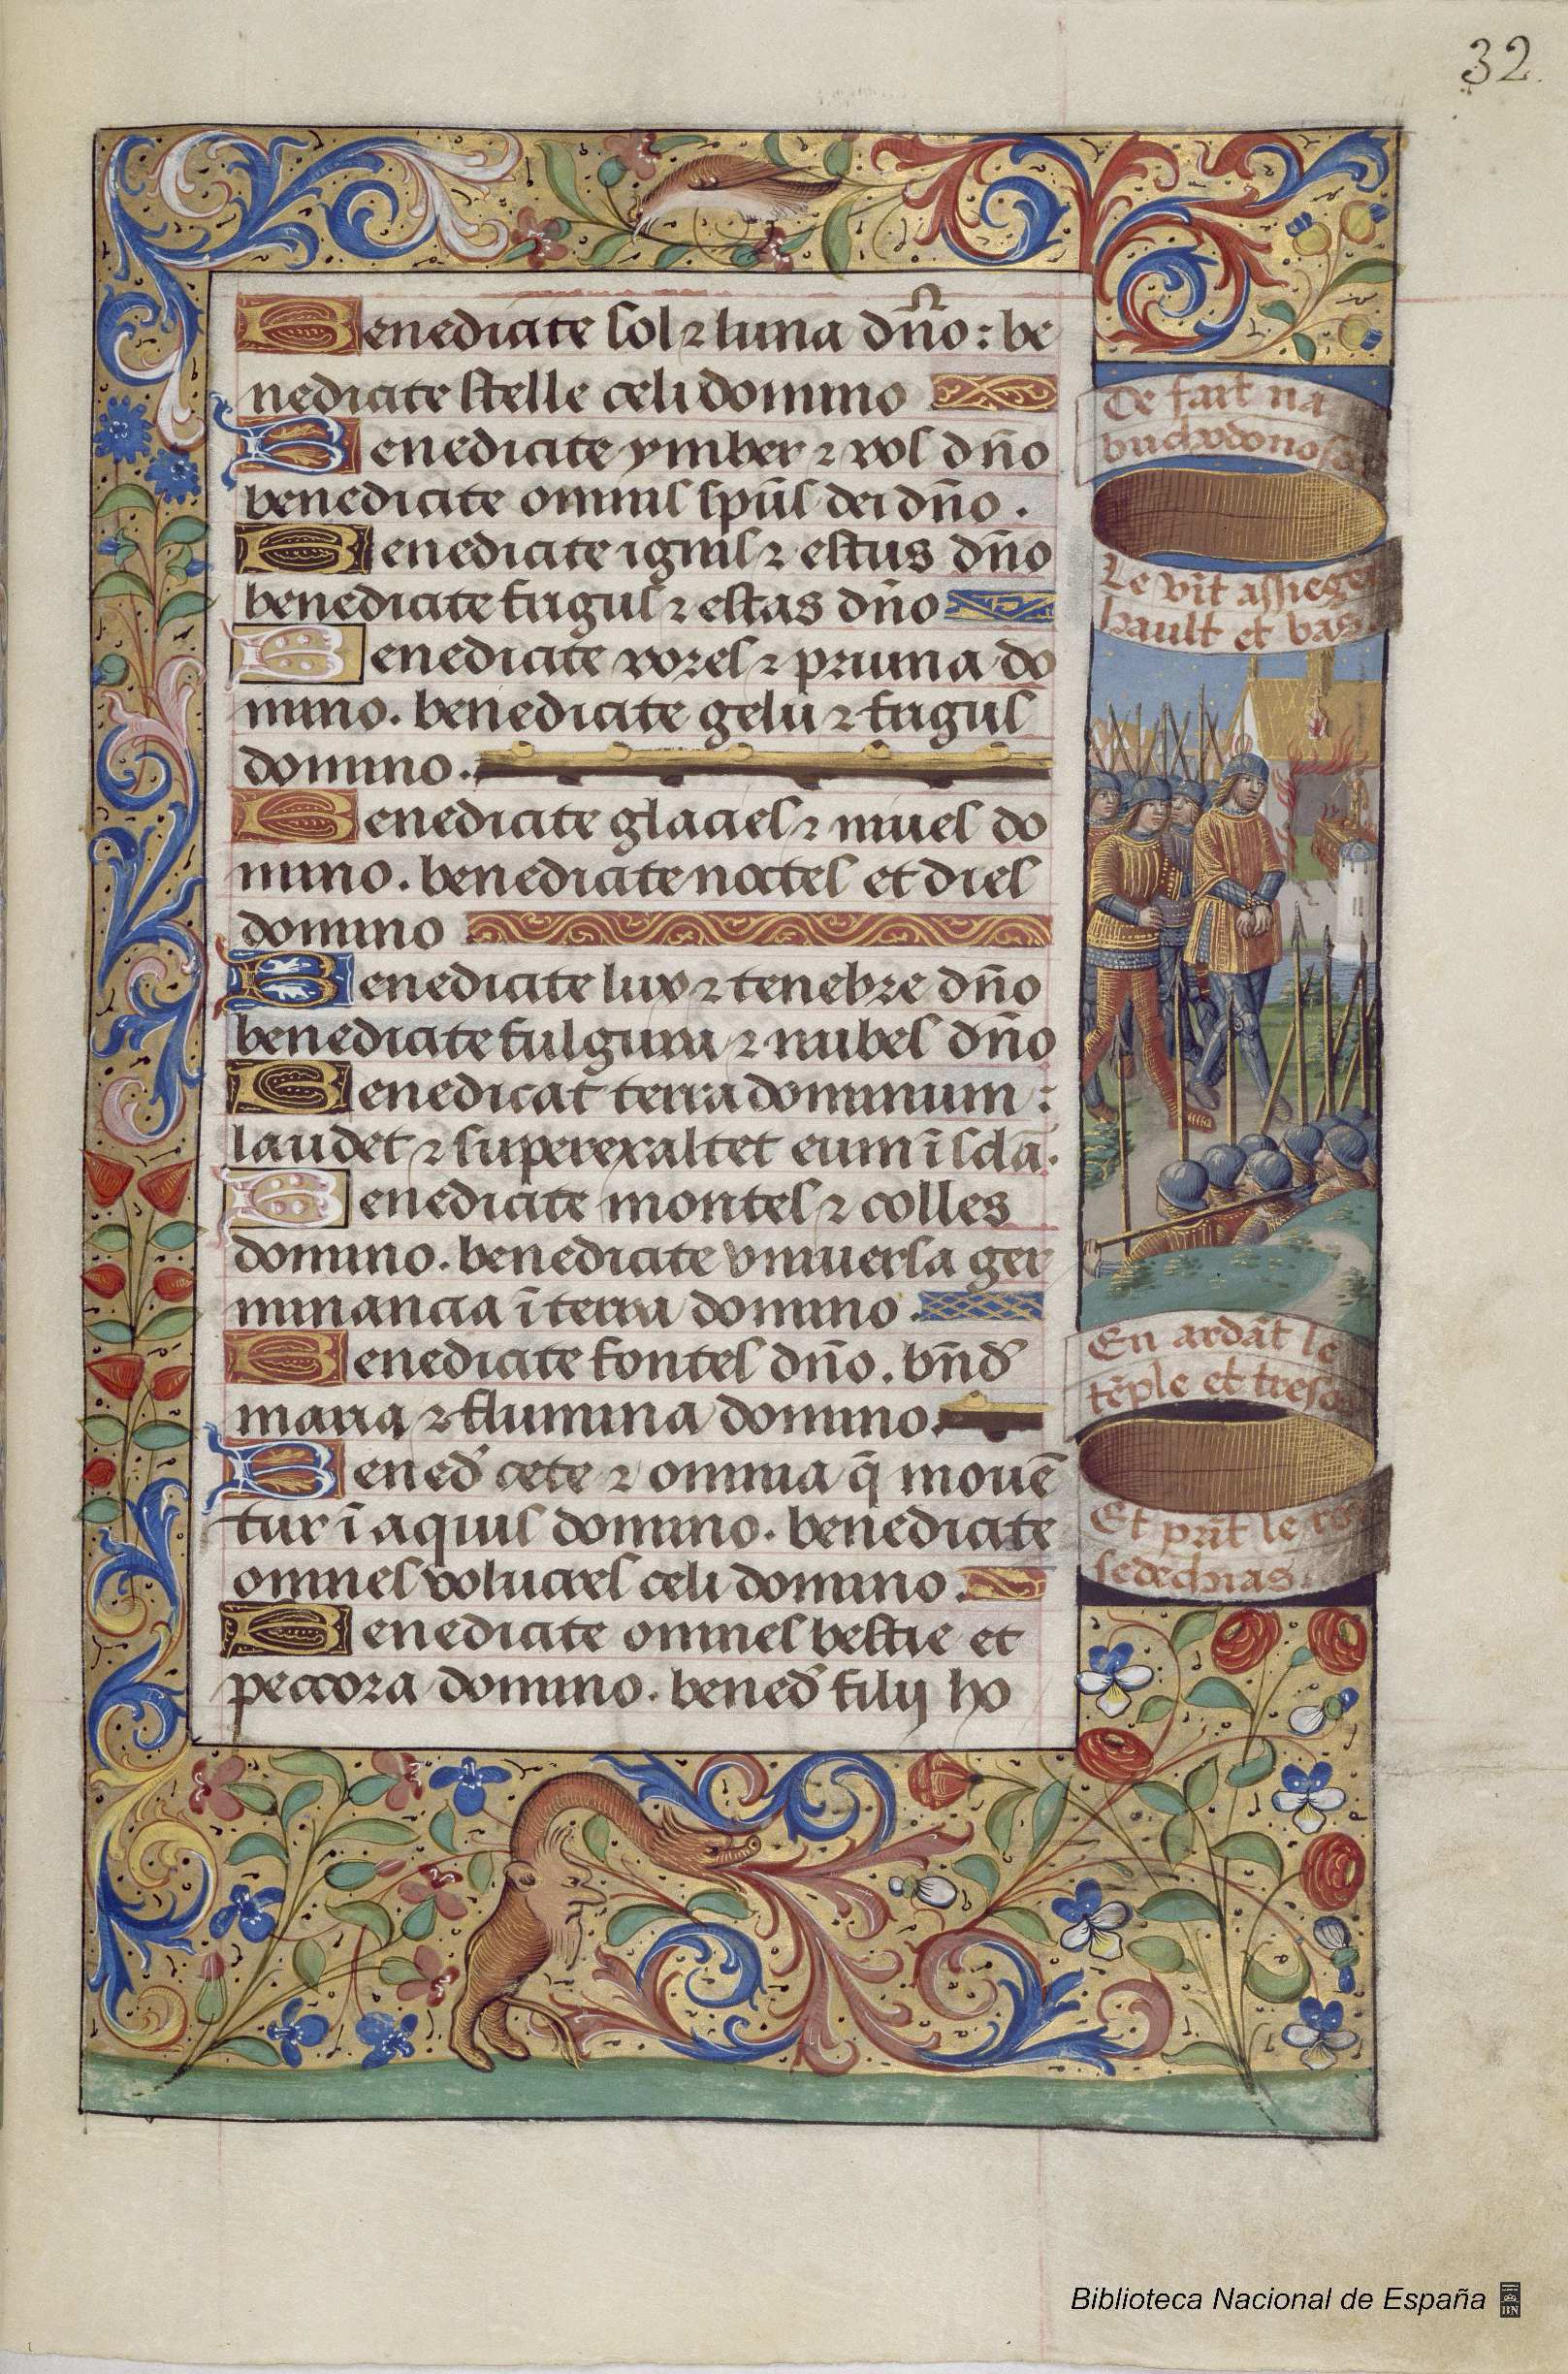 32
Benedicite sol ⁊ luna dn̄o: be
nedicite stelle celi domino
Benedicite ymber ⁊ ros dn̄o
benedicite omnis spūs dei dn̄o.
Benedicite ignis ⁊ estus dn̄o
benedicite frigus ⁊ estas dn̄o
Benedicite rores ⁊ pruina do
mino. benedicite gelu ⁊ frigus
domino.
Benedicite glacies ⁊ niues do
mino. benedicite noctes et dies
domino
Benedicite lux ⁊ tenebre dn̄o
benedicite fulgura ⁊ nubes dn̄o
Benedicat terra dominum:
laudet ⁊ superexaltet eum ī sc̄la.
Benedicite montes ⁊ colles
domino. benedicite vniuersa ger
minancia ī terra domino.
Benedicite fontes dn̄o. bn̄d̉
maria ⁊ flumina domino.
Bened̉ cete ⁊ omnia q̄ mouē
tur ī aquis domino. benedicite
omnes volucres celi domino.
Benedicite omnes bestie et
peccora domino. bened̉ filij ho
De fait na
buchodonosor
Le vīt assieger
hault et bas
En ardāt le
tēple et tresor
Et prīt le roy
sedechias.
Biblioteca Nacional de España
BN